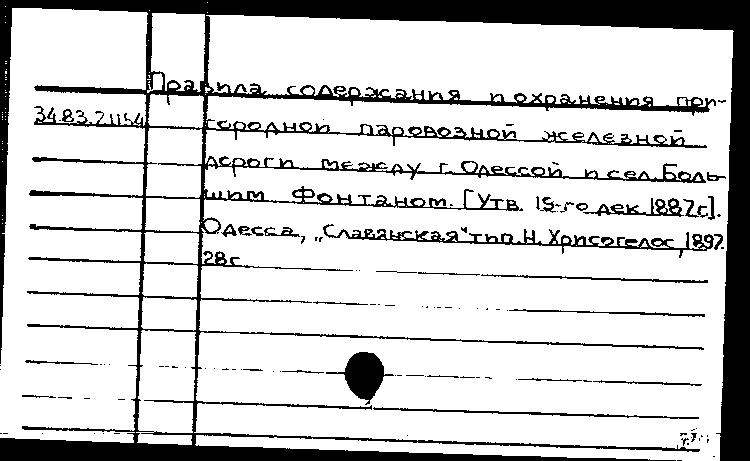 Правила содержания и охранения при-
34.83.21154 городной паровозной железной
дороги между г. Одессой и сел. Боль-
шим Фонтаном. [Утв. 15-го дек. 1887г].
Одесса, „Славянская" тип. Н. Хрисогелос, 1897.
28с